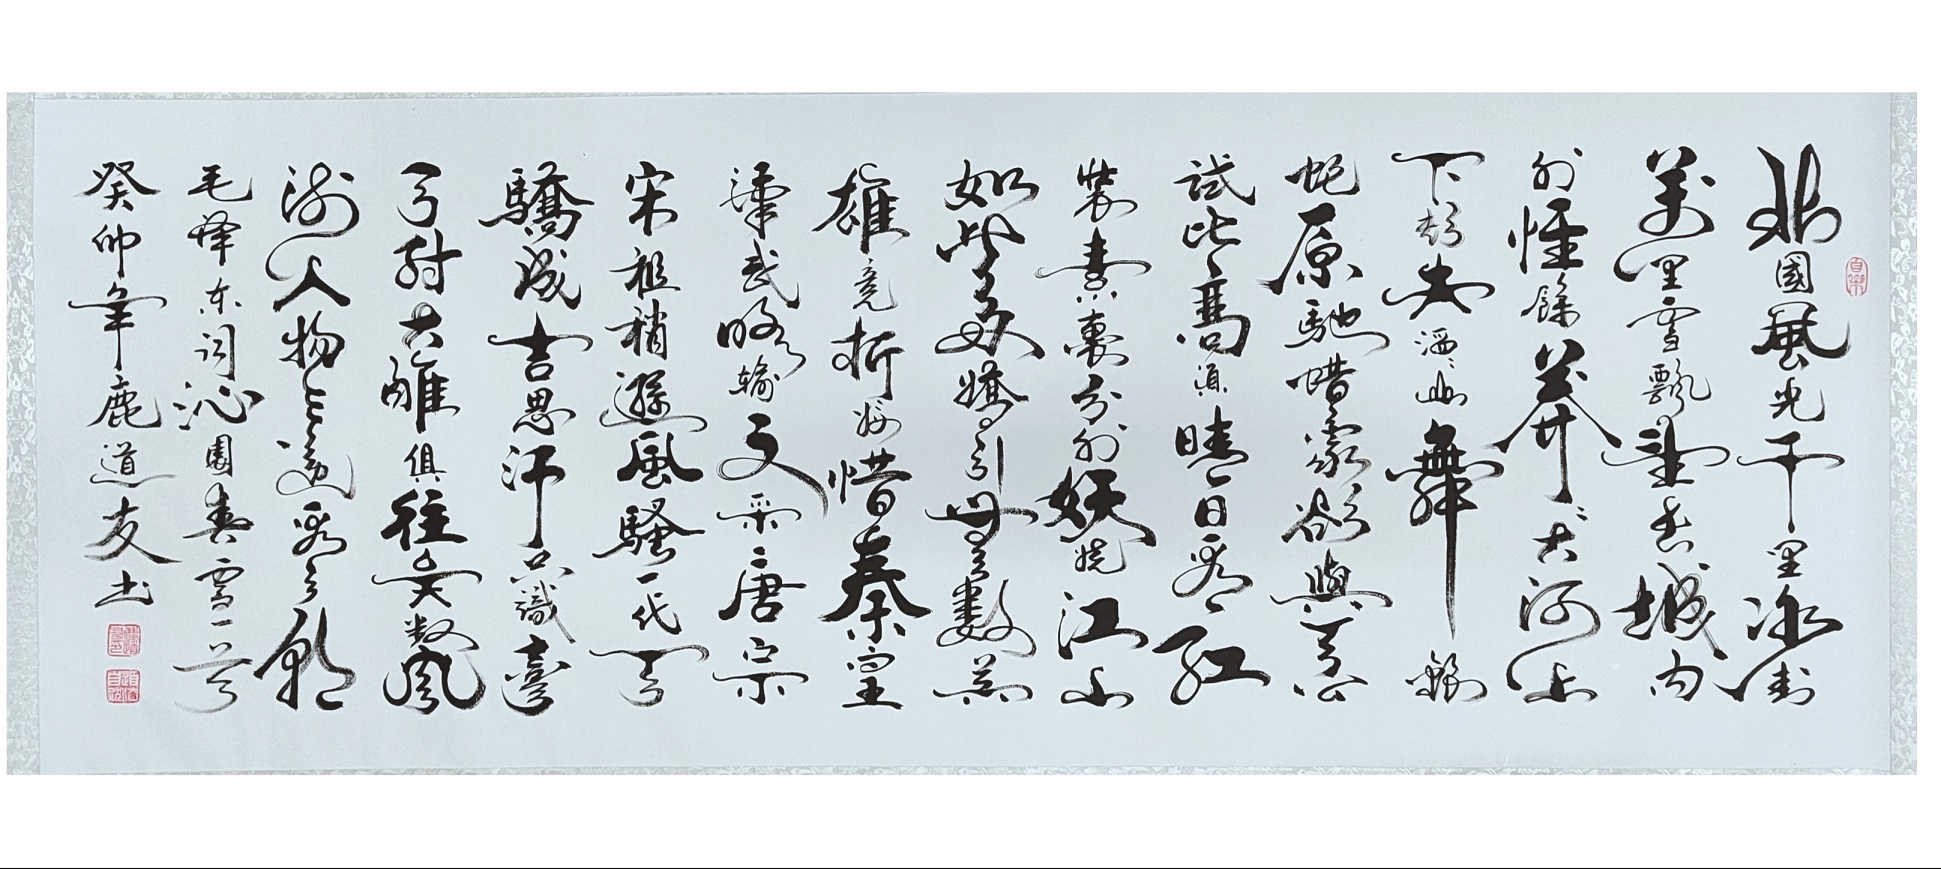 北國風光千里冰封
萬里雪飄望長城内
外惟餘莽莽大河上
下頓失滔滔山舞銀
蛇原馳蜡象欲與天公
試比高須晴日看紅
裝素裹分外妖嬈江山
如此多嬌引無數英
雄竞折腰惜秦皇
漢武略輸文采唐宗
宋祖稍遜風騷一代天
驕成吉思汗只識彎
弓射大雕俱往矣數風
流人物還看今朝
毛泽东词沁園春雪一首
癸卯年鹿道友书